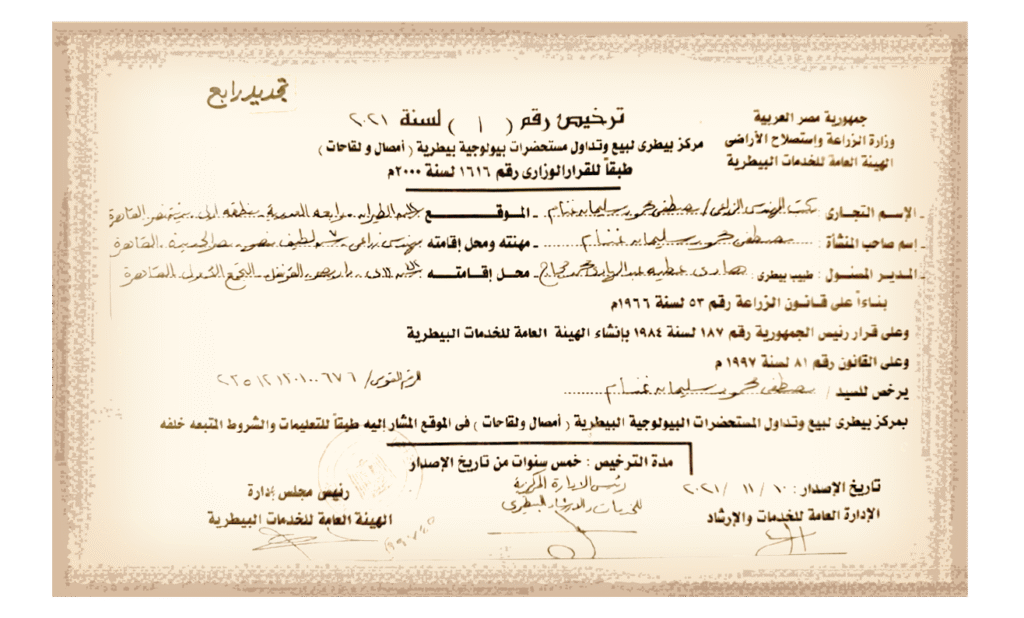 تجديد رابع
جمهورية مصر العربية
وزارة الزراعة وإستصلاح الأراضى
الهيئة العامة للخدمات البيطرية
ترخيص رقم ( ١ ) لسنة ٢٠٢١
مركز بيطرى لبيع وتداول مستحضرات بيولوجية بيطرية ( أمصال و لقاحات )
طبقاً للقرار الوزارى رقم ١٦١٦ لسنة ٢٠٠٠م
ـ الإسم التجارى : مكتب المهندس الزراعى / مصطفى محمود سليمان غنام ـ الموقع
ـ إسم صاحب المنشأة : مصطفى محمود سليمان غنام ـ مهنته ومحل إقامته مهندس زراعى
ـ المدير المسئول : طبيب بيطرى : هادى عطيه عبد الهادى محمد حجاج ـ محل إقامتـه التجمع الاول القاهرة
بناءاً على قانون الزراعة رقم ٥٣ لسنة ١٩٦٦م
وعلى قرار رئيس الجمهورية رقم ١٨٧ لسنة ١٩٨٤ بإنشاء الهيئة العامة للخدمات البيطرية
وعلى القانون رقم ٨١ لسنة ١٩٩٧ م
يرخص للسيد / مصطفى محمود سليمان غنام الرقم القومى /
بمركز بيطرى لبيع وتداول المستحضرات البيولوجية البيطرية ( أمصال ولقاحات ) فى الموقع المشار إليه طبقاً للتعليمات والشروط المتبعه خلفه
مدة الترخيص : خمس سنوات من تاريخ الإصدار
تاريخ الإصدار : ١٠ / ١١ / ٢٠٢١
الإدارة العامة للخدمات والإرشاد
رئيس الادارة المركزية
للخدمات والارشاد البيطرى
رئيس مجلس إدارة
الهيئة العامة للخدمات البيطرية